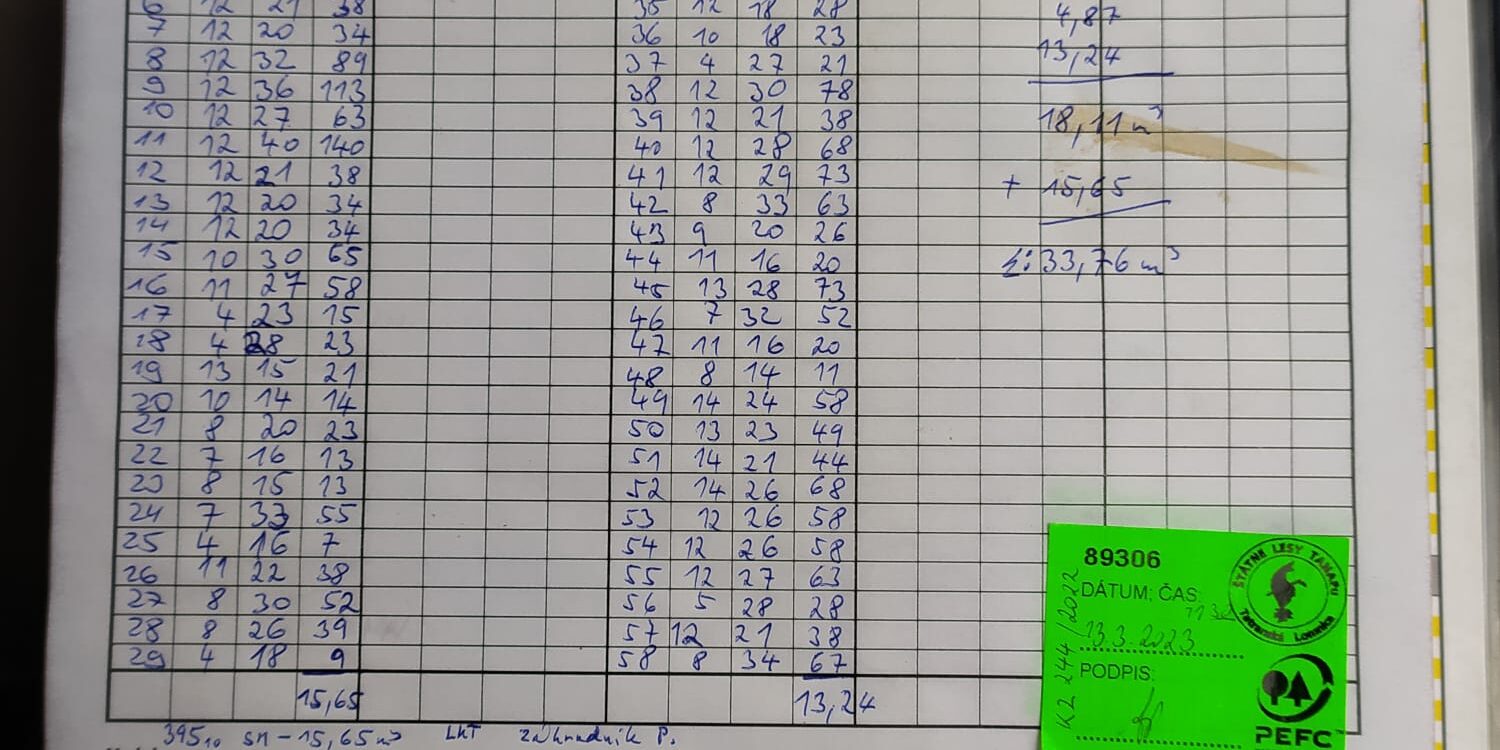 6 12 21 38 35 12 18 28 4,87
7 12 20 34 36 10 18 23
8 12 32 89 37 4 27 21 13,24
9 12 36 113 38 12 30 78
10 12 27 63 39 12 21 38 18,11 m³
11 12 40 140 40 12 28 68
12 12 21 38 41 12 29 73 + 15,65
13 12 20 34 42 8 33 63
14 12 20 34 43 9 20 26
15 10 30 65 44 11 16 20 Σ: 33,76 m³
16 11 27 58 45 13 28 73
17 4 23 15 46 7 32 52
18 4 28 23 47 11 16 20
19 13 15 21 48 8 14 11
20 10 14 14 49 14 24 58
21 8 20 23 50 13 23 49
22 7 16 13 51 14 21 44
23 8 15 13 52 14 26 68
24 7 33 55 53 12 26 58
25 4 16 7 54 12 26 58
26 11 22 38 55 12 27 63
27 8 30 52 56 5 28 28
28 8 26 39 57 12 21 38
29 4 18 9 58 8 34 67
15,65 13,24
39510 SM - 15,65 m³ LKT záhradník P.
89306
DÁTUM; ČAS:
13.3.2023
PODPIS:
K2 244/2022
ŠTÁTNE LESY TANAPU
Tatranská Lomnica
PEFC™